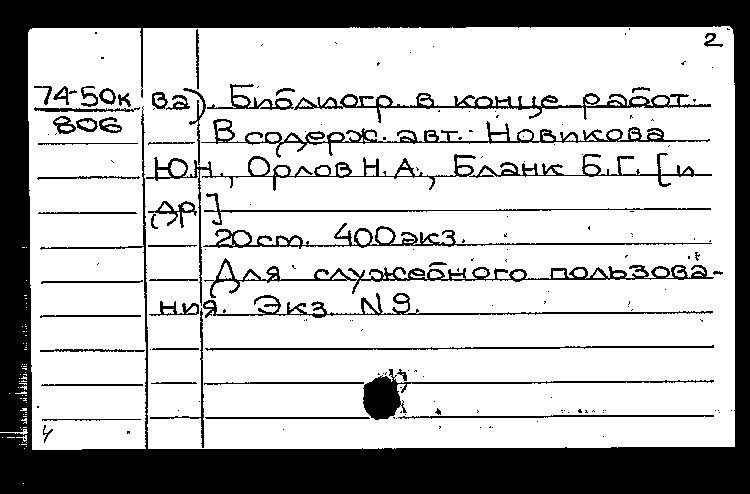 2
74-50к ва). Библиогр. в конце работ.
806
В содерж. авт.: Новикова
Ю.Н., Орлов Н.А., Бланк Б.Г. [и
др.]
20 ст. 400 экз.
Для служебного пользова-
ния. Экз. N 9.